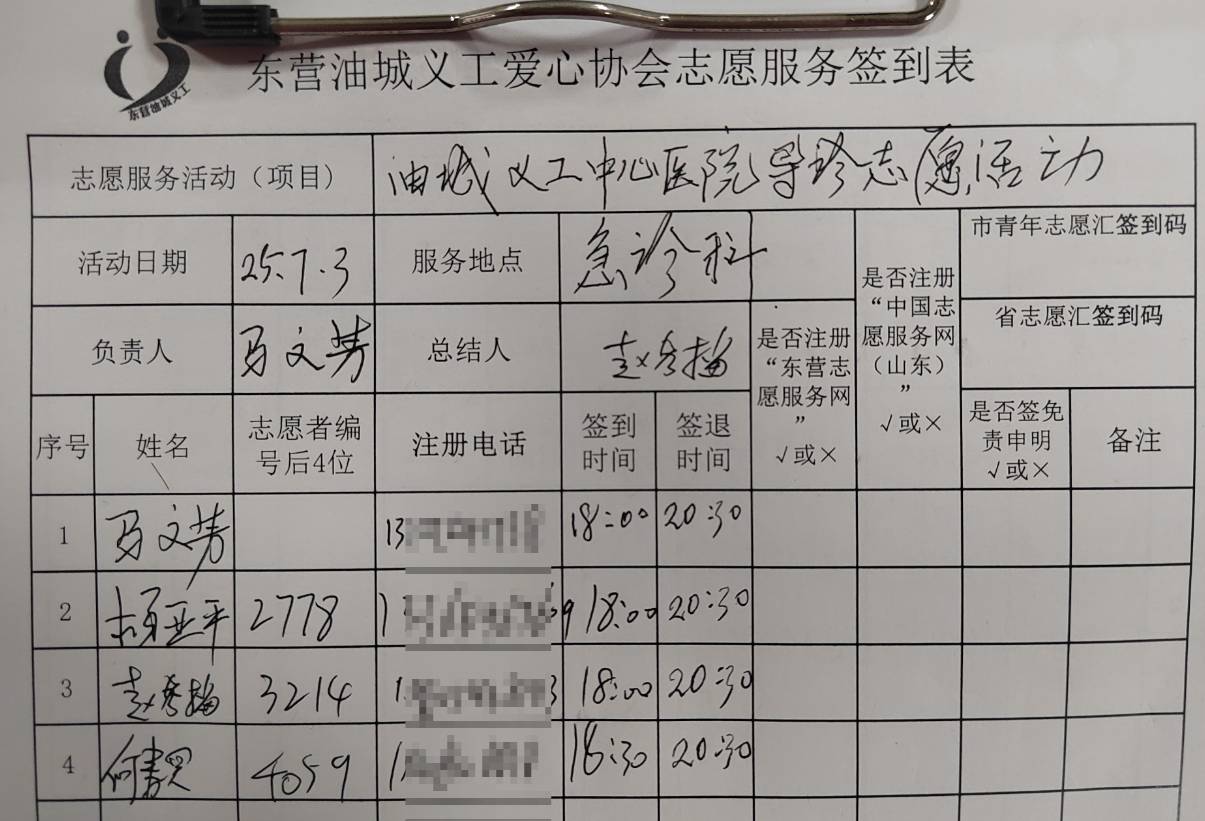 东营油城义工
东营油城义工爱心协会志愿服务签到表
志愿服务活动（项目） 油城义工中心医院导诊志愿活动
活动日期 25.7.3 服务地点 急诊科
负责人 马文芳 总结人 赵秀梅
是否注册
“东营志
愿服务网
”
√或×
是否注册
“中国志
愿服务网
（山东）
”
√或×
市青年志愿汇签到码
省志愿汇签到码
序号 姓名 志愿者编
号后4位 注册电话 签到
时间 签退
时间 是否签免
责申明
√或× 备注
1 马文芳 13 18:00 20:30
2 亚平 2778 1 9 18:00 20:30
3 赵秀梅 3214 1 3 18:00 20:30
4 何 4059 1 18:30 20:30